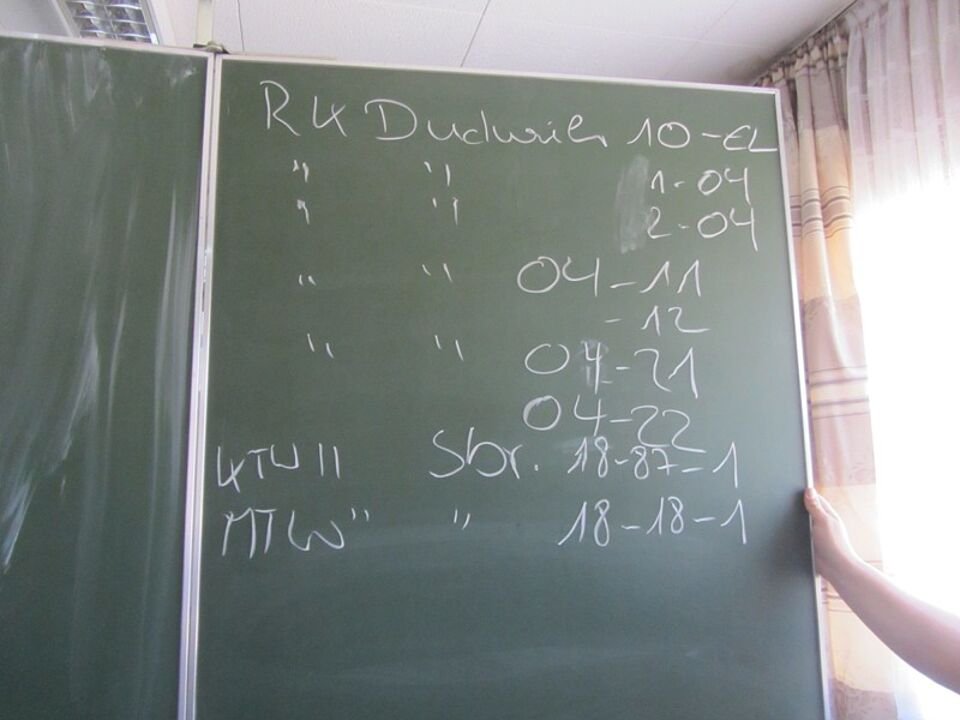 RK Dudweiler 10-EL
" " 1-04
" " 2-04
" " 04-11
-12
" " 04-21
04-22
KTW II Sbr. 18-87-1
MTW " " 18-18-1